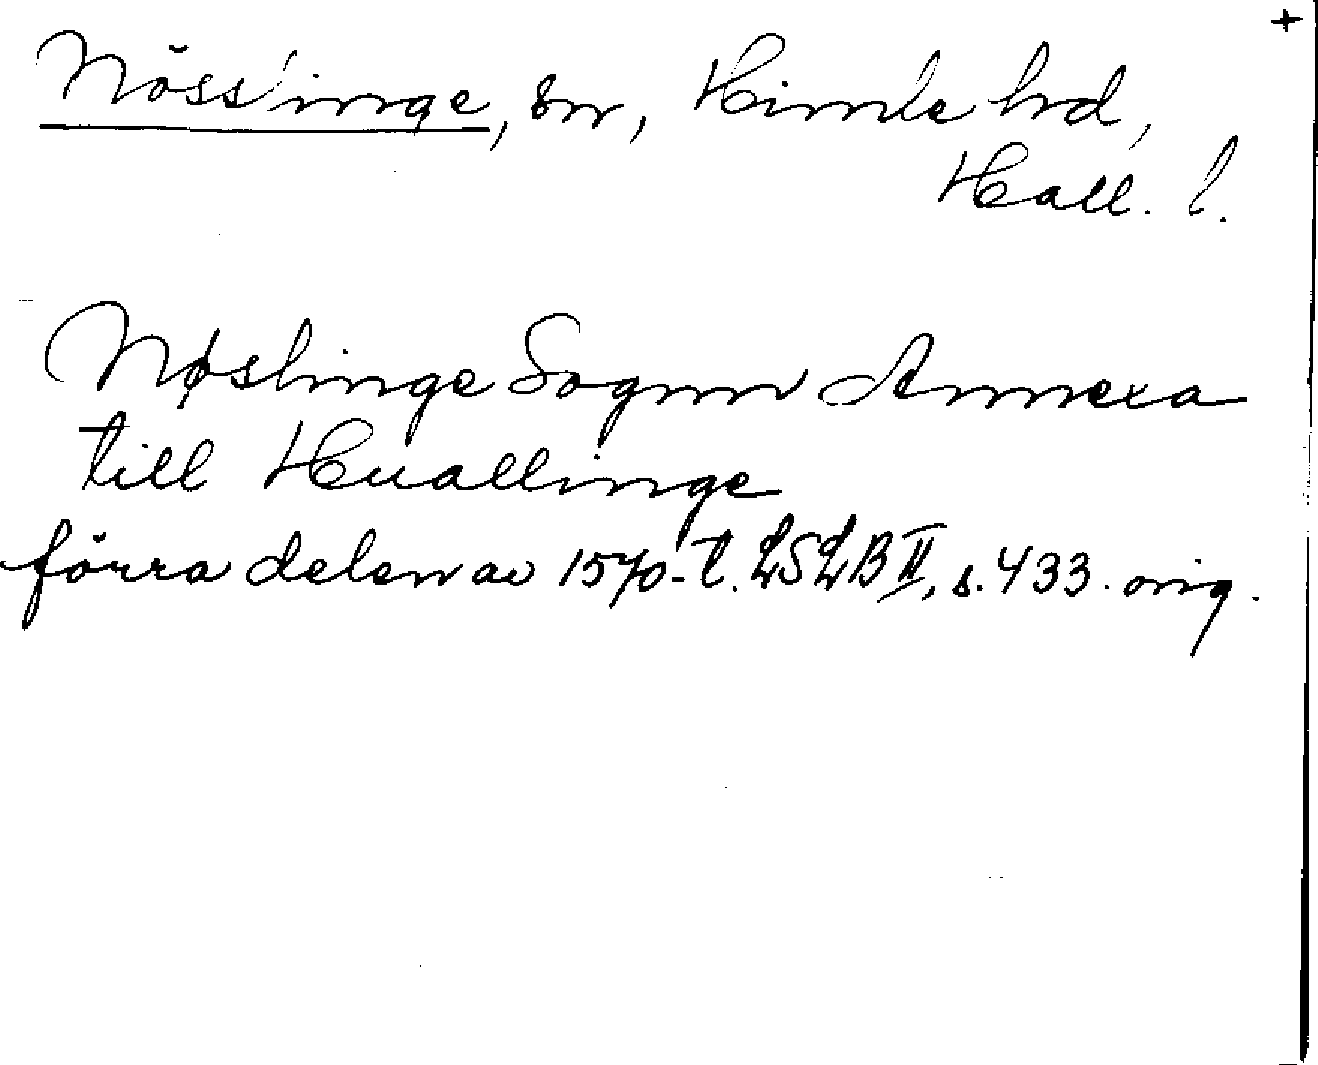 +
Nösslinge, sn, Himle hrd,
Hall. l.
Nøslinge Sognn Annexa
till Huallinge
förra delen av 1570-t. LSLB II, s. 433. orig.